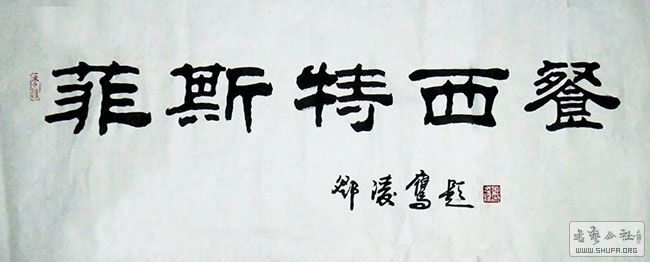 菲斯特西餐
题
书艺公社
WWW.SHUFA.ORG